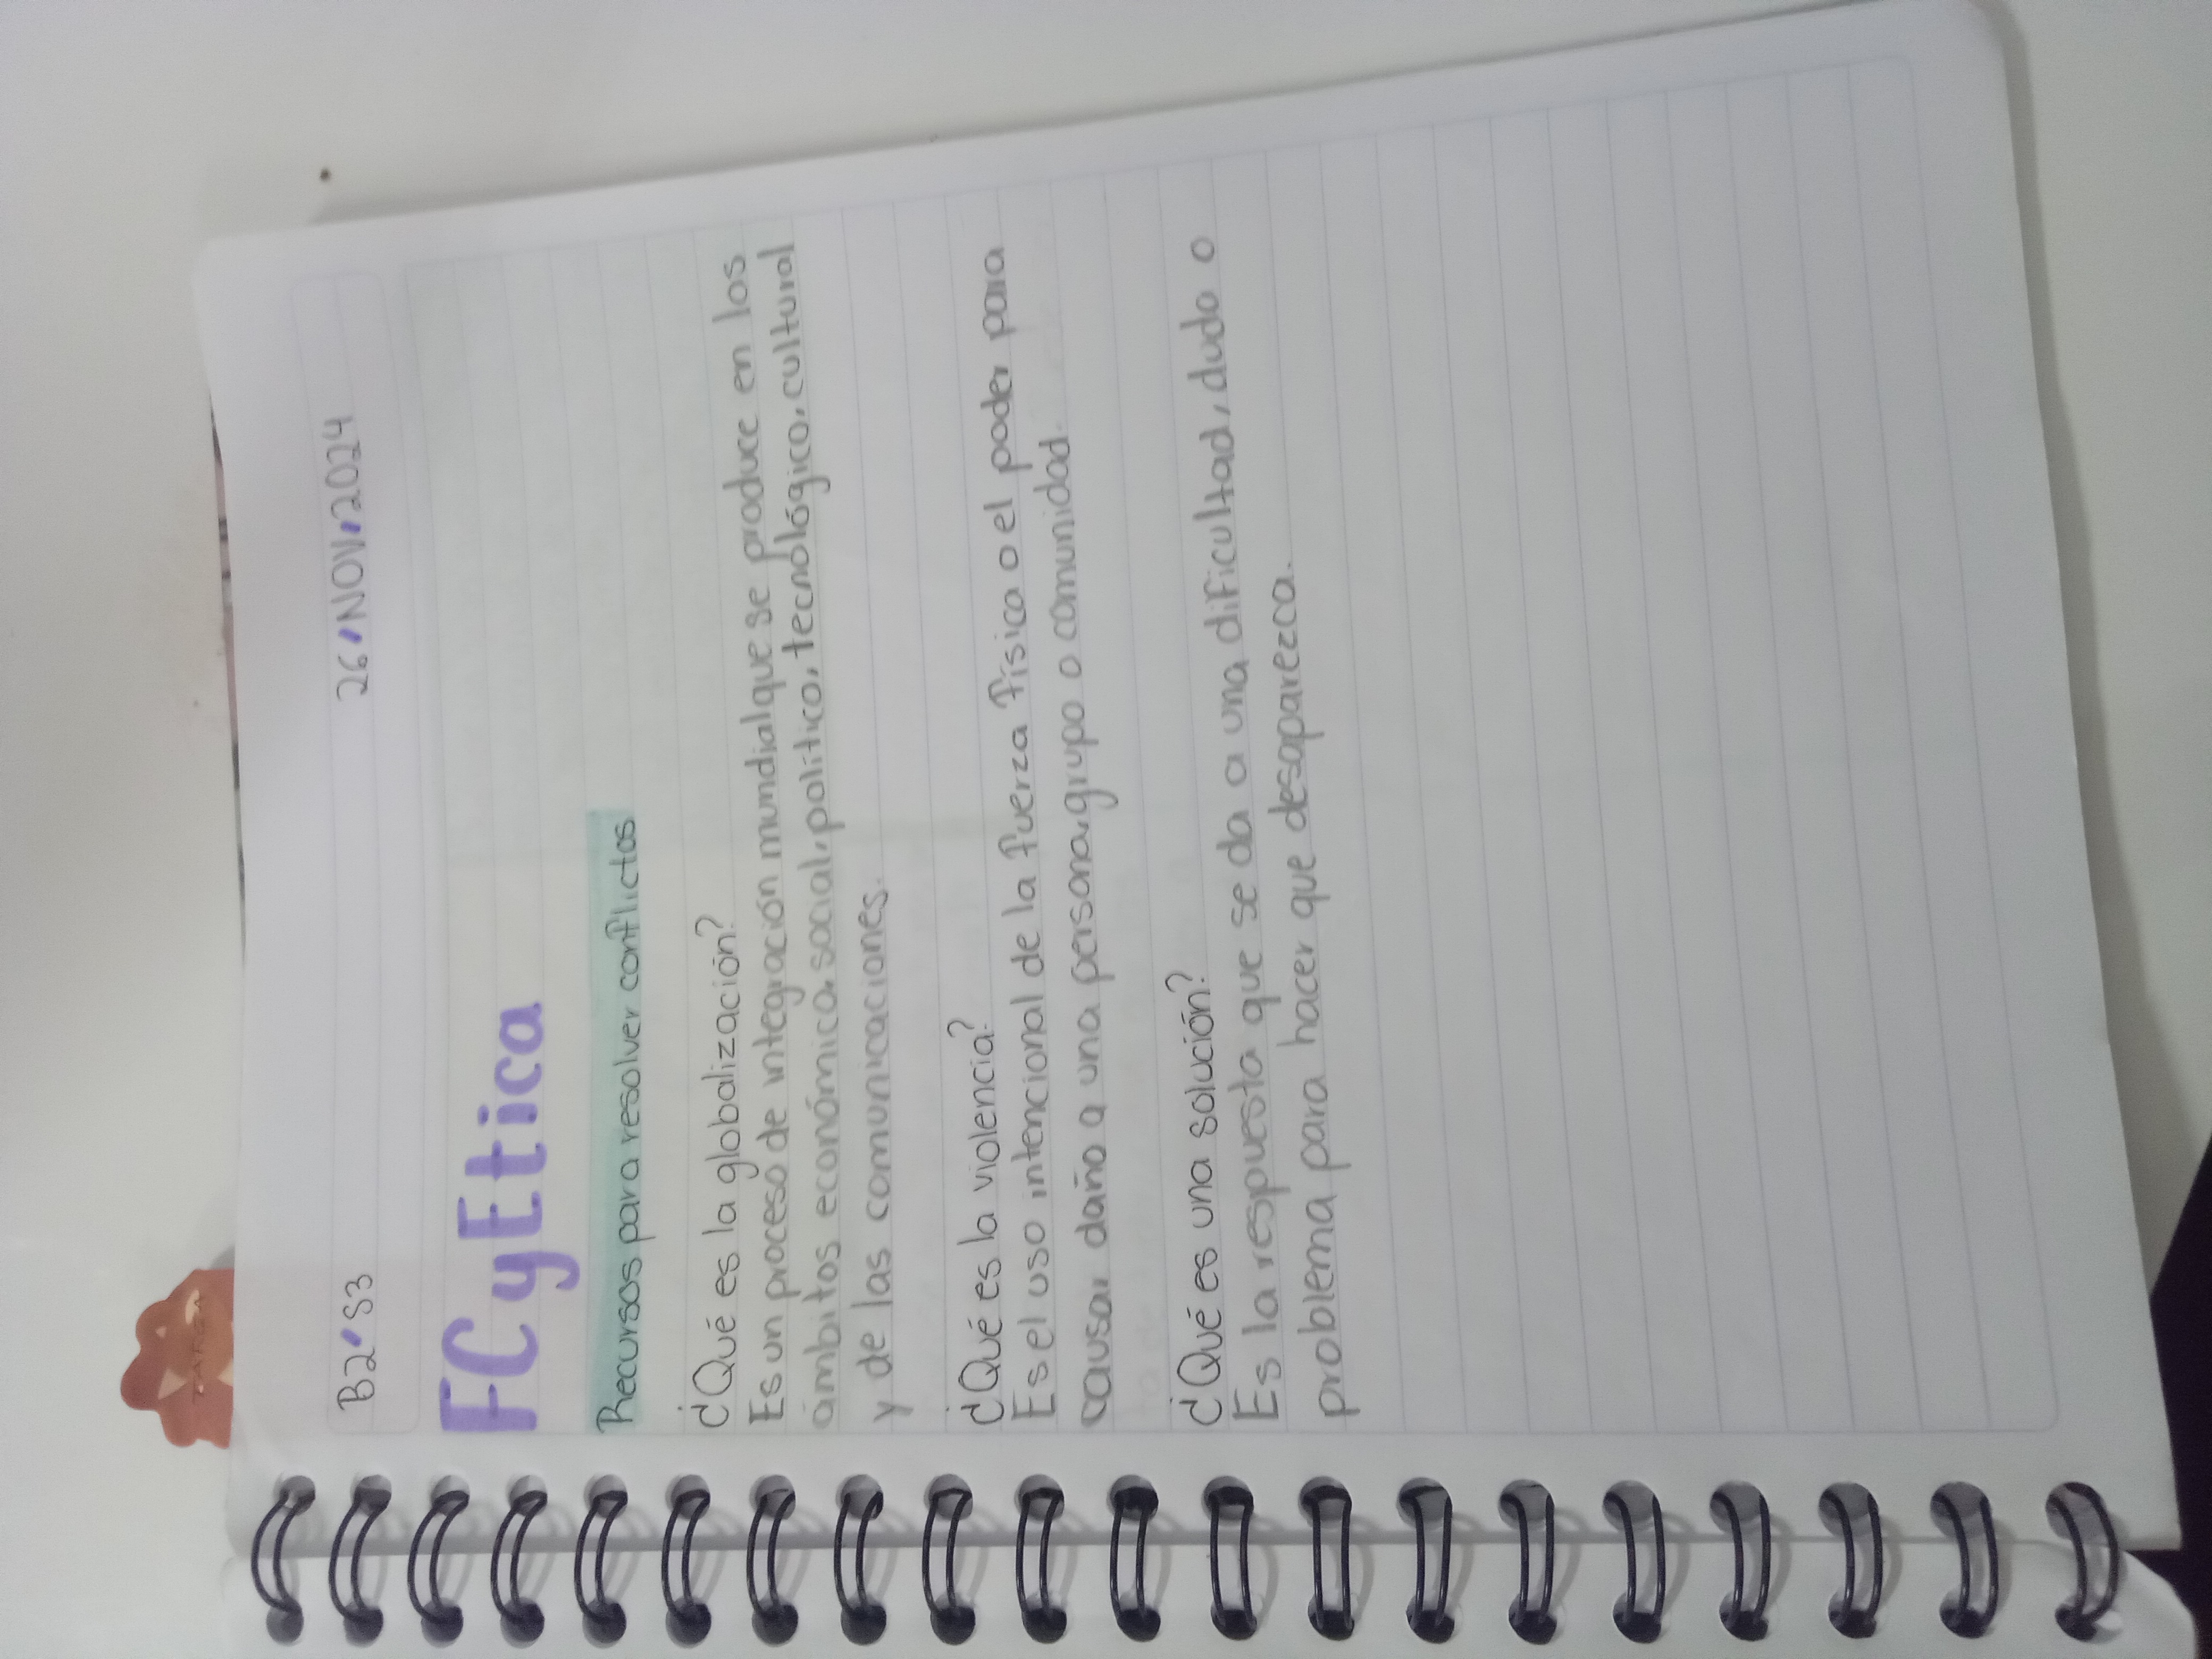 B2'S3 26'NOV'2024
FC y Etica
Recursos para resolver conflictos
¿Qué es la globalización?
Es un proceso de integración mundial que se produce en los
ámbitos económico, social, político, tecnológico, cultural
y de las comunicaciones.
¿Qué es la violencia?
Es el uso intencional de la fuerza física o el poder para
causar daño a una persona, grupo o comunidad.
¿Qué es una solución?
Es la respuesta que se da a una dificultad, duda o
problema para hacer que desaparezca.